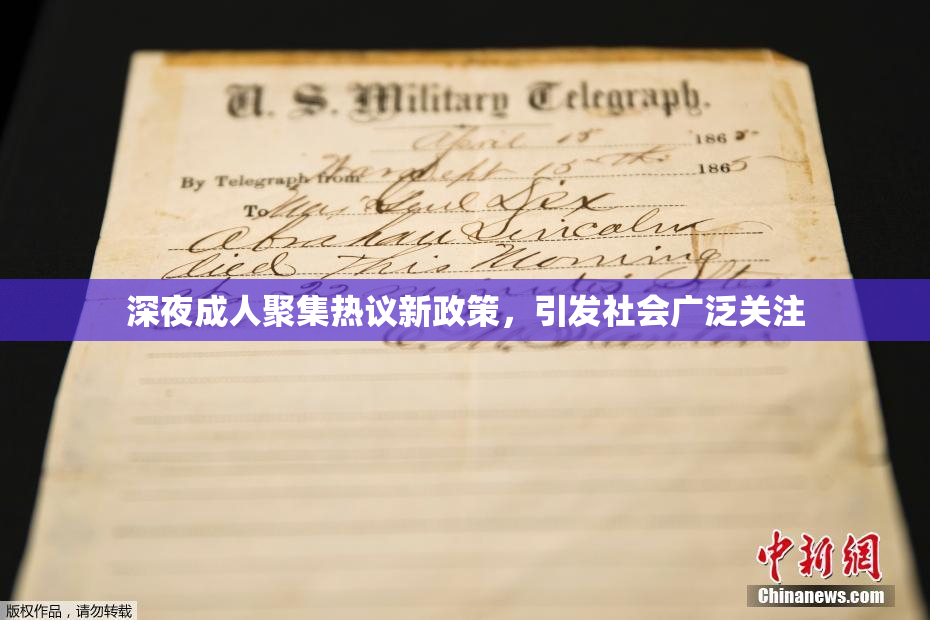 U. S. Military Telegraph.
April 15 1865.
By Telegraph from War Dept 15th 1865
To Maj Genl Dix
Abraham Lincoln
died This Morning
22 minutes after
深夜成人聚集热议新政策，引发社会广泛关注
E. M. Stanton
中新网
Chinanews.com
版权作品，请勿转载